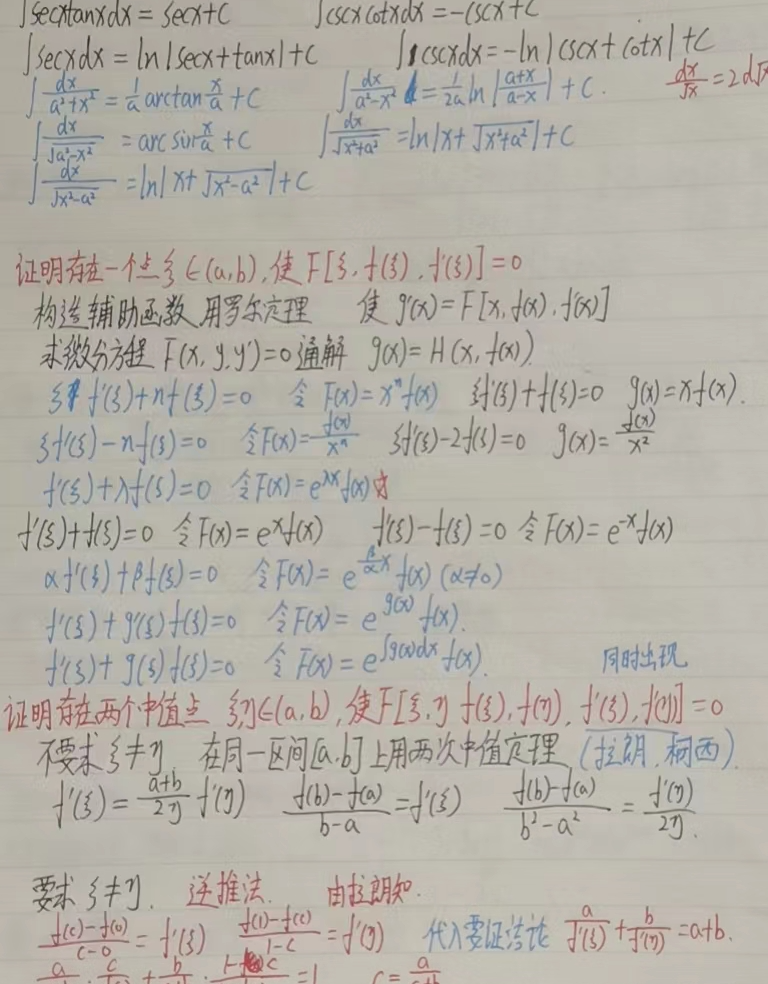 ∫secxtanxdx = secx+C ∫cscxcotxdx = -cscx+C
∫secxdx = ln|secx+tanx|+C ∫cscxdx = -ln|cscx+cotx|+C
∫dx/(a²+x²) = 1/a arctan x/a + C ∫dx/(a²-x²) = 1/2a ln|(a+x)/(a-x)| + C. dx/√x = 2d√x
∫dx/√(a²-x²) = arcsin x/a + C ∫dx/√(x²+a²) = ln|x+√(x²+a²)|+C
∫dx/√(x²-a²) = ln|x+√(x²-a²)|+C
证明存在一个点ξ∈(a,b),使F[ξ,f(ξ),f'(ξ)]=0
构造辅助函数,用罗尔定理 使g'(x)=F[x,f(x),f'(x)]
求微分方程F(x,y,y')=0通解 g(x)=H(x,f(x)).
ξf'(ξ)+nf(ξ)=0 令F(x)=xⁿf(x) ξf'(ξ)+f(ξ)=0 g(x)=xf(x).
ξf'(ξ)-nf(ξ)=0 令F(x)=f(x)/xⁿ ξf'(ξ)-2f(ξ)=0 g(x)=f(x)/x²
f'(ξ)+λf(ξ)=0 令F(x)=e^(λx)f(x)☆
f'(ξ)+f(ξ)=0 令F(x)=e^x f(x) f'(ξ)-f(ξ)=0 令F(x)=e^(-x)f(x)
αf'(ξ)+βf(ξ)=0 令F(x)=e^(β/α x)f(x) (α≠0)
f'(ξ)+g'(ξ)f(ξ)=0 令F(x)=e^(g(x))f(x).
f'(ξ)+g(ξ)f(ξ)=0 令F(x)=e^(∫g(x)dx)f(x). 同时出现
证明存在两个中值点 ξ,η∈(a,b),使F[ξ,η,f(ξ),f(η),f'(ξ),f'(η)]=0
不要求ξ≠η,在同一区间[a,b]上用两次中值定理(拉朗,柯西).
f'(ξ)=(a+b)/2η f'(η) (f(b)-f(a))/(b-a)=f'(ξ) (f(b)-f(a))/(b²-a²)=f'(η)/2η.
要求ξ≠η. 逆推法. 由拉朗知.
(f(c)-f(0))/(c-0)=f'(ξ) (f(1)-f(c))/(1-c)=f'(η) 代入要证结论 a/f'(ξ)+b/f'(η)=a+b.